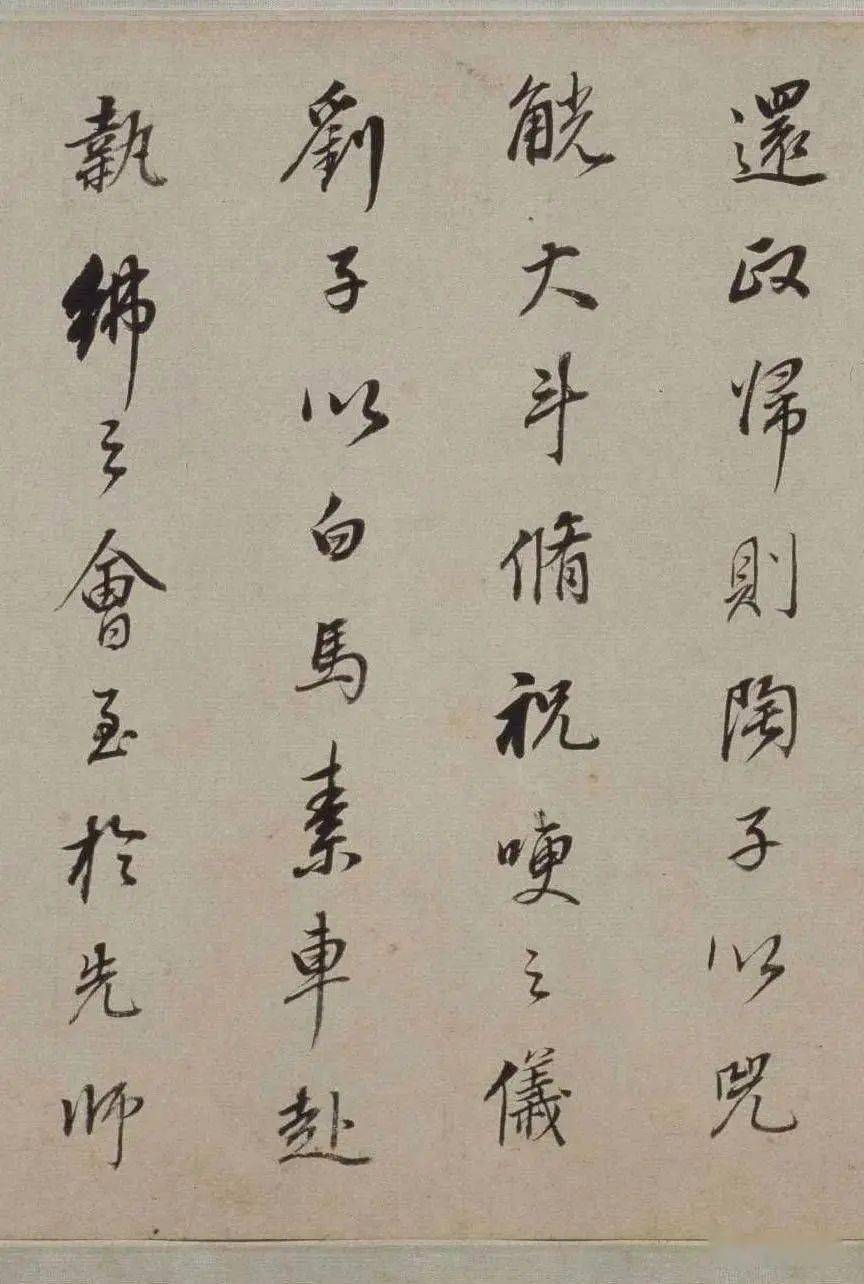 還政歸則陶子以兕
觥大斗脩祝哽之儀
劉子以白馬素車赴
執紼之會至於先師